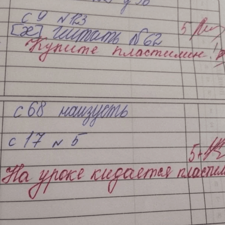 с 9 №23
[х] читать №62
Купите пластилин!
с 68 наизусть
с 17 № 5
На уроке кидается пластил